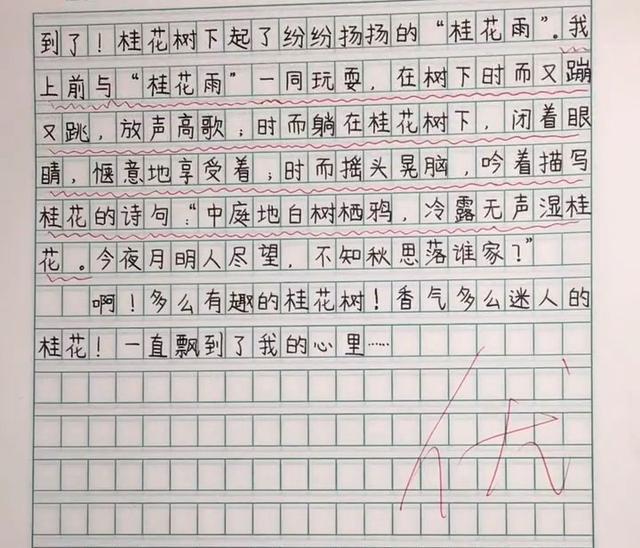 到了！桂花树下起了纷纷扬扬的“桂花雨”。我
上前与“桂花雨”一同玩耍，在树下时而又蹦
又跳，放声高歌；时而躺在桂花树下，闭着眼
睛，惬意地享受着；时而摇头晃脑，吟着描写
桂花的诗句：“中庭地白树栖鸦，冷露无声湿桂
花。今夜月明人尽望，不知秋思落谁家？”
啊！多么有趣的桂花树！香气多么迷人的
桂花！一直飘到了我的心里……
优